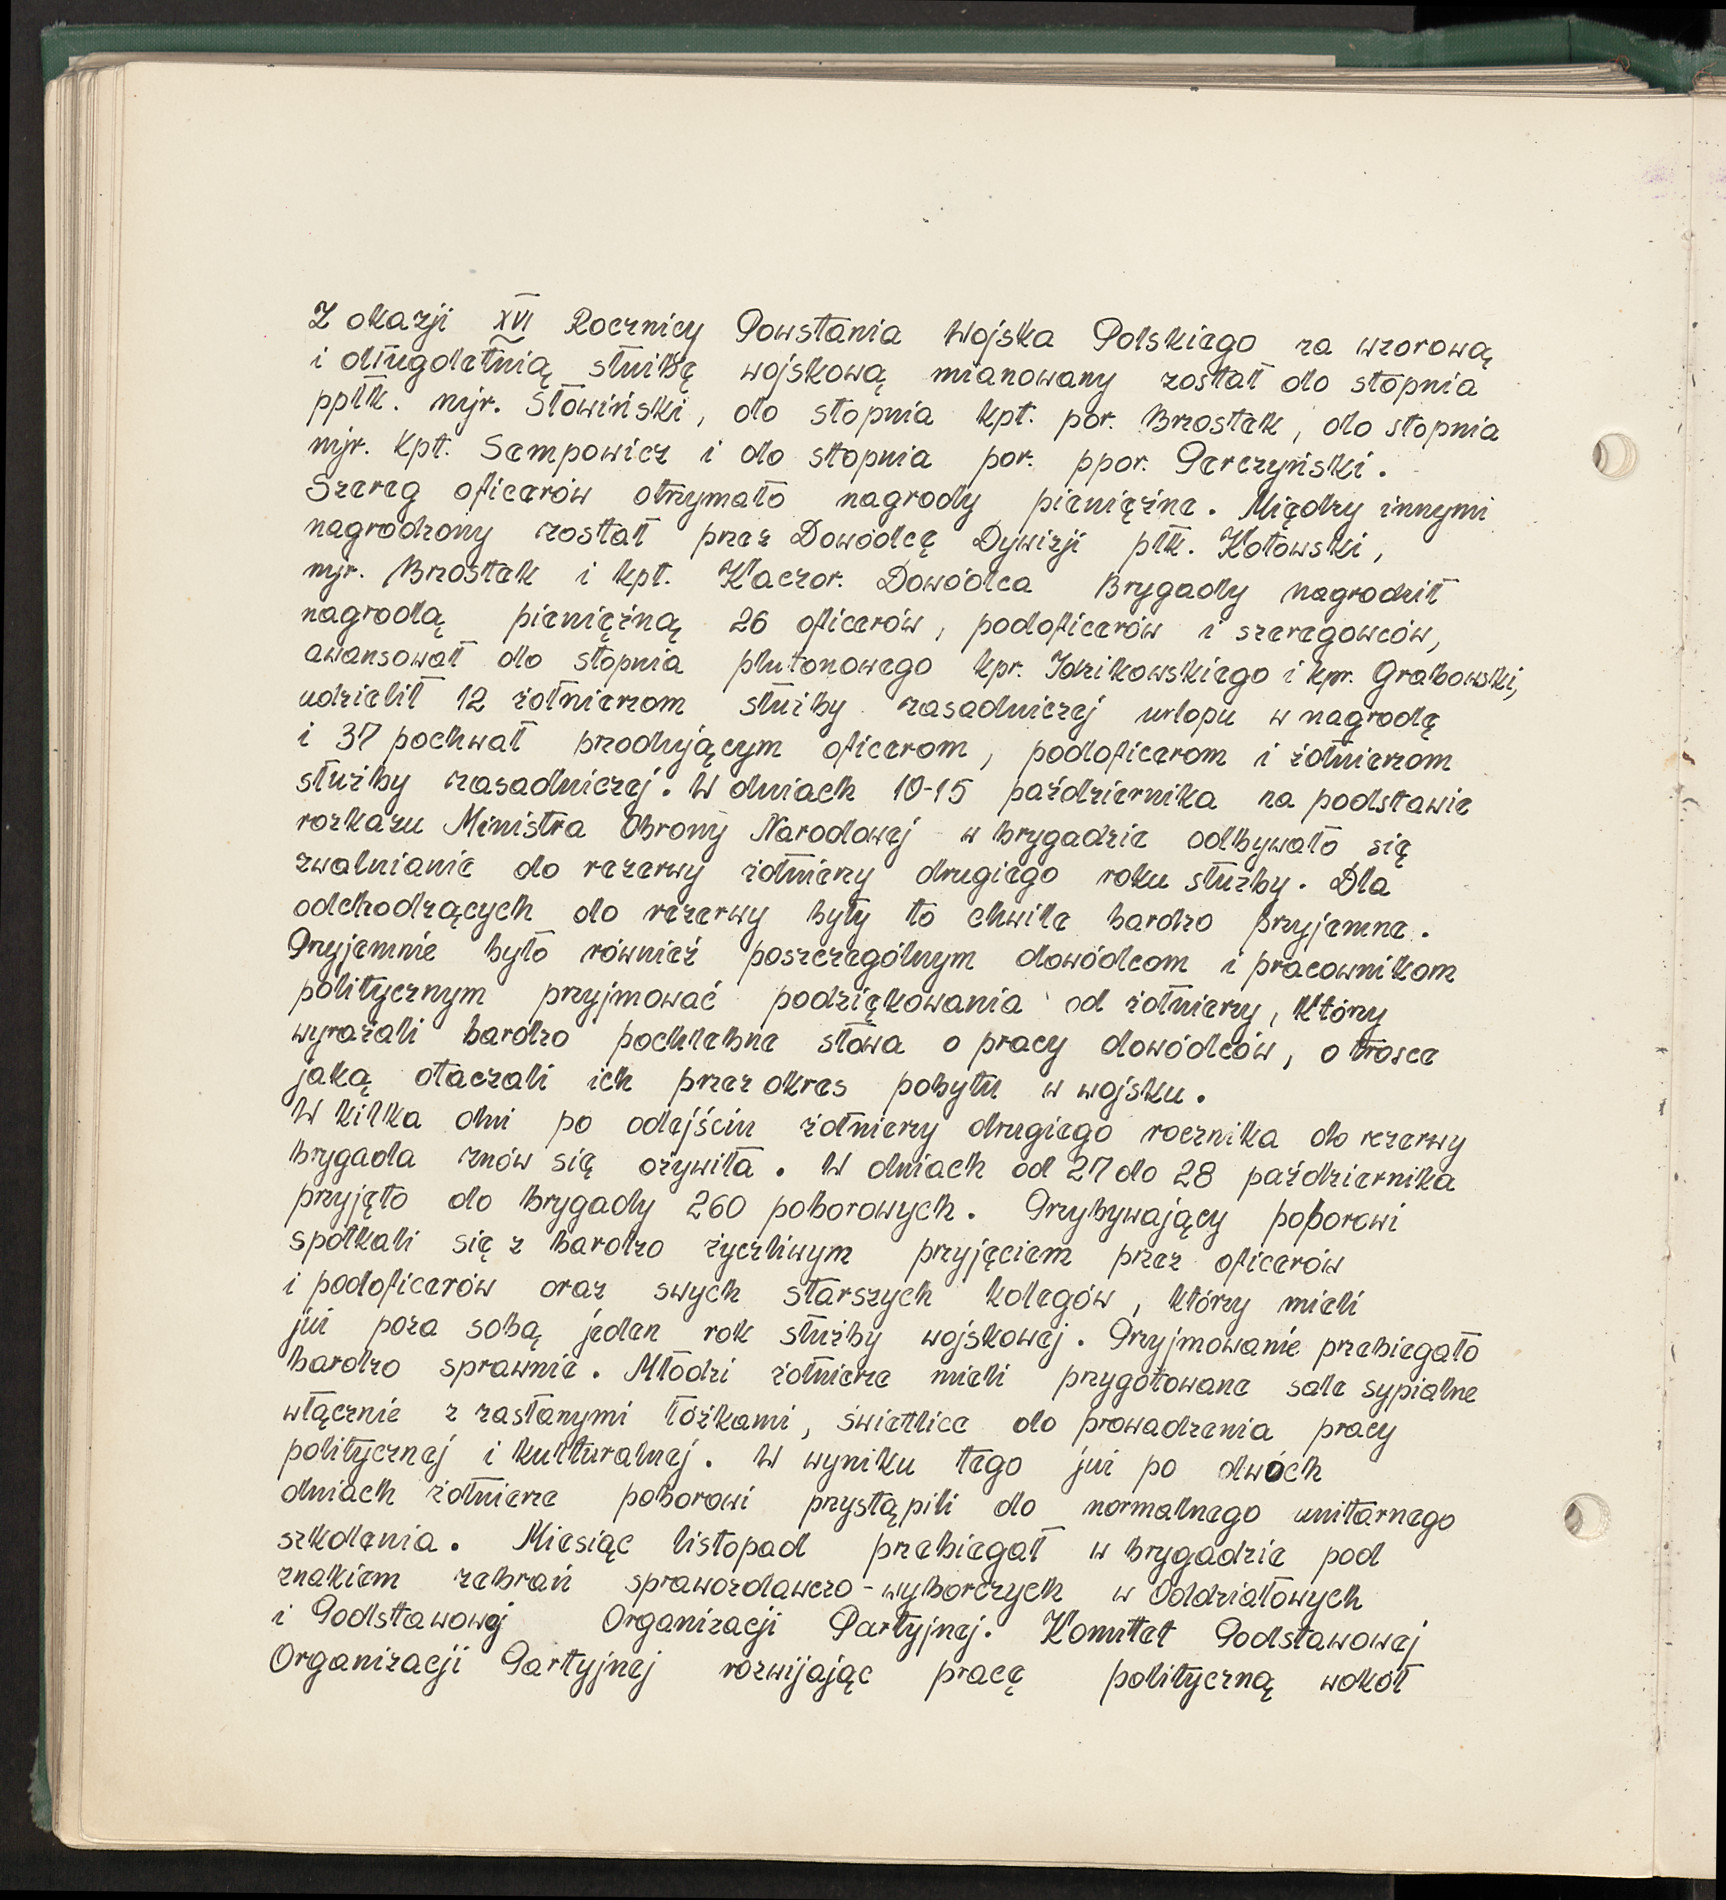 Z okazji XVI Rocznicy Powstania Wojska Polskiego za wzorową
i długoletnią służbę wojskową mianowany został do stopnia
ppłk. mjr. Słowiński, do stopnia kpt. por. Brzostek, do stopnia
mjr. kpt. Sempowicz i do stopnia por. ppor. Perczyński.
Szereg oficerów otrzymało nagrody pieniężne. Między innymi
nagrodzony został przez Dowódcę Dywizji płk. Kotowski,
mjr. Brzostek i kpt. Kaczor. Dowódca Brygady nagrodził
nagrodą pieniężną 26 oficerów, podoficerów i szeregowców,
awansował do stopnia plutonowego kpr. Idzikowskiego i kpr. Grabowski,
udzielił 12 żołnierzom służby zasadniczej urlopu w nagrodę
i 37 pochwał przodującym oficerom, podoficerom i żołnierzom
służby zasadniczej. W dniach 10-15 października na podstawie
rozkazu Ministra Obrony Narodowej w brygadzie odbywało się
zwalnianie do rezerwy żołnierzy drugiego roku służby. Dla
odchodzących do rezerwy były to chwile bardzo przyjemne.
Przyjemnie było również poszczególnym dowódcom i pracownikom
politycznym przyjmować podziękowania od żołnierzy, którzy
wyrażali bardzo pochlebne słowa o pracy dowódców, o trosce
jaką otaczali ich przez okres pobytu w wojsku.
W kilka dni po odejściu żołnierzy drugiego rocznika do rezerwy
brygada znów się ożywiła. W dniach od 27 do 28 października
przyjęto do brygady 260 poborowych. Przybywający poborowi
spotkali się z bardzo życzliwym przyjęciem przez oficerów
i podoficerów oraz swych starszych kolegów, którzy mieli
już poza sobą jeden rok służby wojskowej. Przyjmowanie przebiegało
bardzo sprawnie. Młodzi żołnierze mieli przygotowane sale sypialne
włącznie z zasłanymi łóżkami, świetlice do prowadzenia pracy
politycznej i kulturalnej. W wyniku tego już po dwóch
dniach żołnierze poborowi przystąpili do normalnego unitarnego
szkolenia. Miesiąc listopad przebiegał w brygadzie pod
znakiem zebrań sprawozdawczo-wyborczych w Oddziałowych
i Podstawowej Organizacji Partyjnej. Komitet Podstawowej
Organizacji Partyjnej rozwijając pracę polityczną wokół